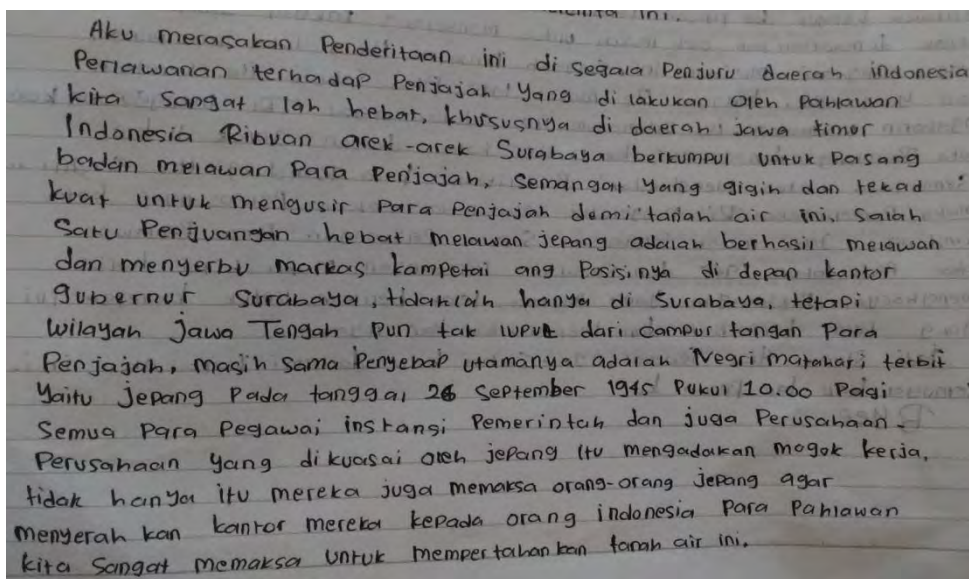 Aku merasakan Penderitaan ini di segala Penjuru daerah indonesia
Perlawanan terhadap Penjajah Yang di lakukan oleh Pahlawan
kita sangat lah hebat, khususnya di daerah jawa timor
Indonesia Ribuan arek-arek Surabaya berkumpul untuk Pasang
badan melawan Para Penjajah, Semangat yang gigih dan tekad
kuat untuk mengusir Para Penjajah demi tanah air ini. Salah
Satu Penjuangan hebat melawan jepang adalah berhasil melawan
dan menyerbu markas kampetai ang Posisinya di depan kantor
gubernur Surabaya, tidak lain hanya di Surabaya, tetapi
wilayah Jawa Tengah pun tak luput dari campur tangan Para
Penjajah, masih sama Penyebab utamanya adalah Negri matahari terbit
Yaitu Jepang Pada tanggal 26 September 1945 Pukul 10.00 Pagi
Semua Para Pegawai instansi Pemerintah dan juga Perusahaan-
Perusahaan yang dikuasai oleh jepang itu mengadakan mogok kerja,
tidak hanya itu mereka juga memaksa orang-orang jepang agar
menyerah kan kantor mereka kepada orang indonesia Para Pahlawan
kita sangat memaksa untuk mempertahankan tanah air ini.